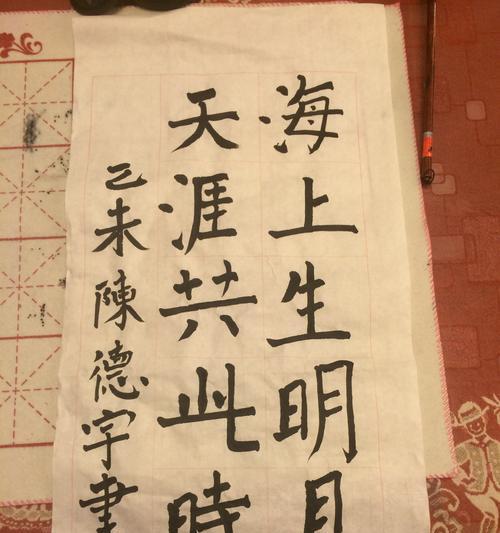 海上生明月
天涯共此時
乙未陳德字書